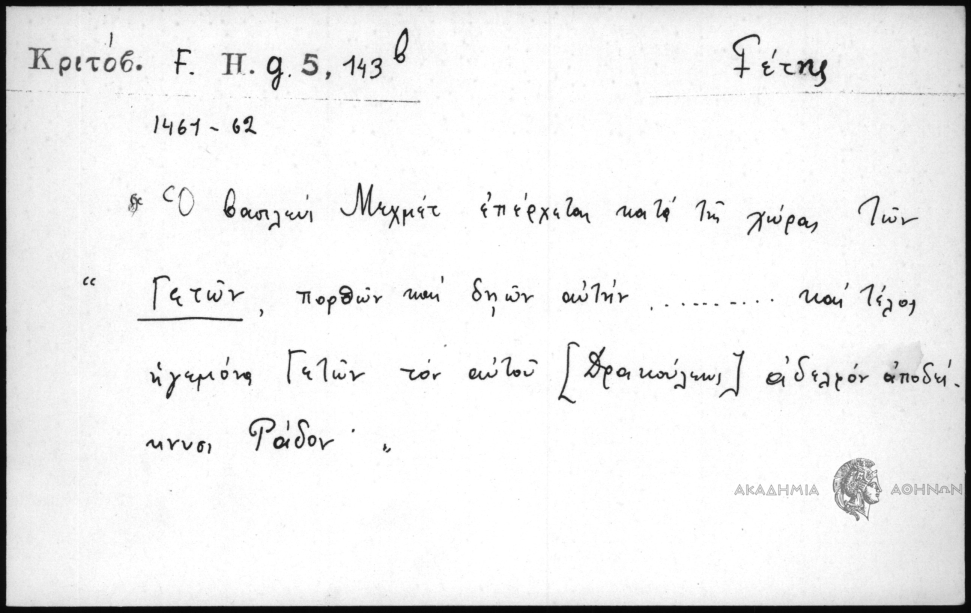 Κριτόβ. F. H. g. 5, 143 b
Γέτης
1461 - 62
Ὁ βασιλεύς Μεχμέτ ἐπέρχεται κατά τῆς χώρας τῶν
“ Γετῶν, πορθῶν καί δῃῶν αὐτήν .......... καί τέλος
ἡγεμόνα Γετῶν τόν αὐτοῦ [Δρακούλεως] ἀδελφόν ἀποδεί-
κνυσι Ράδον · „
ΑΚΑΔΗΜΙΑ ΑΘΗΝΩΝ